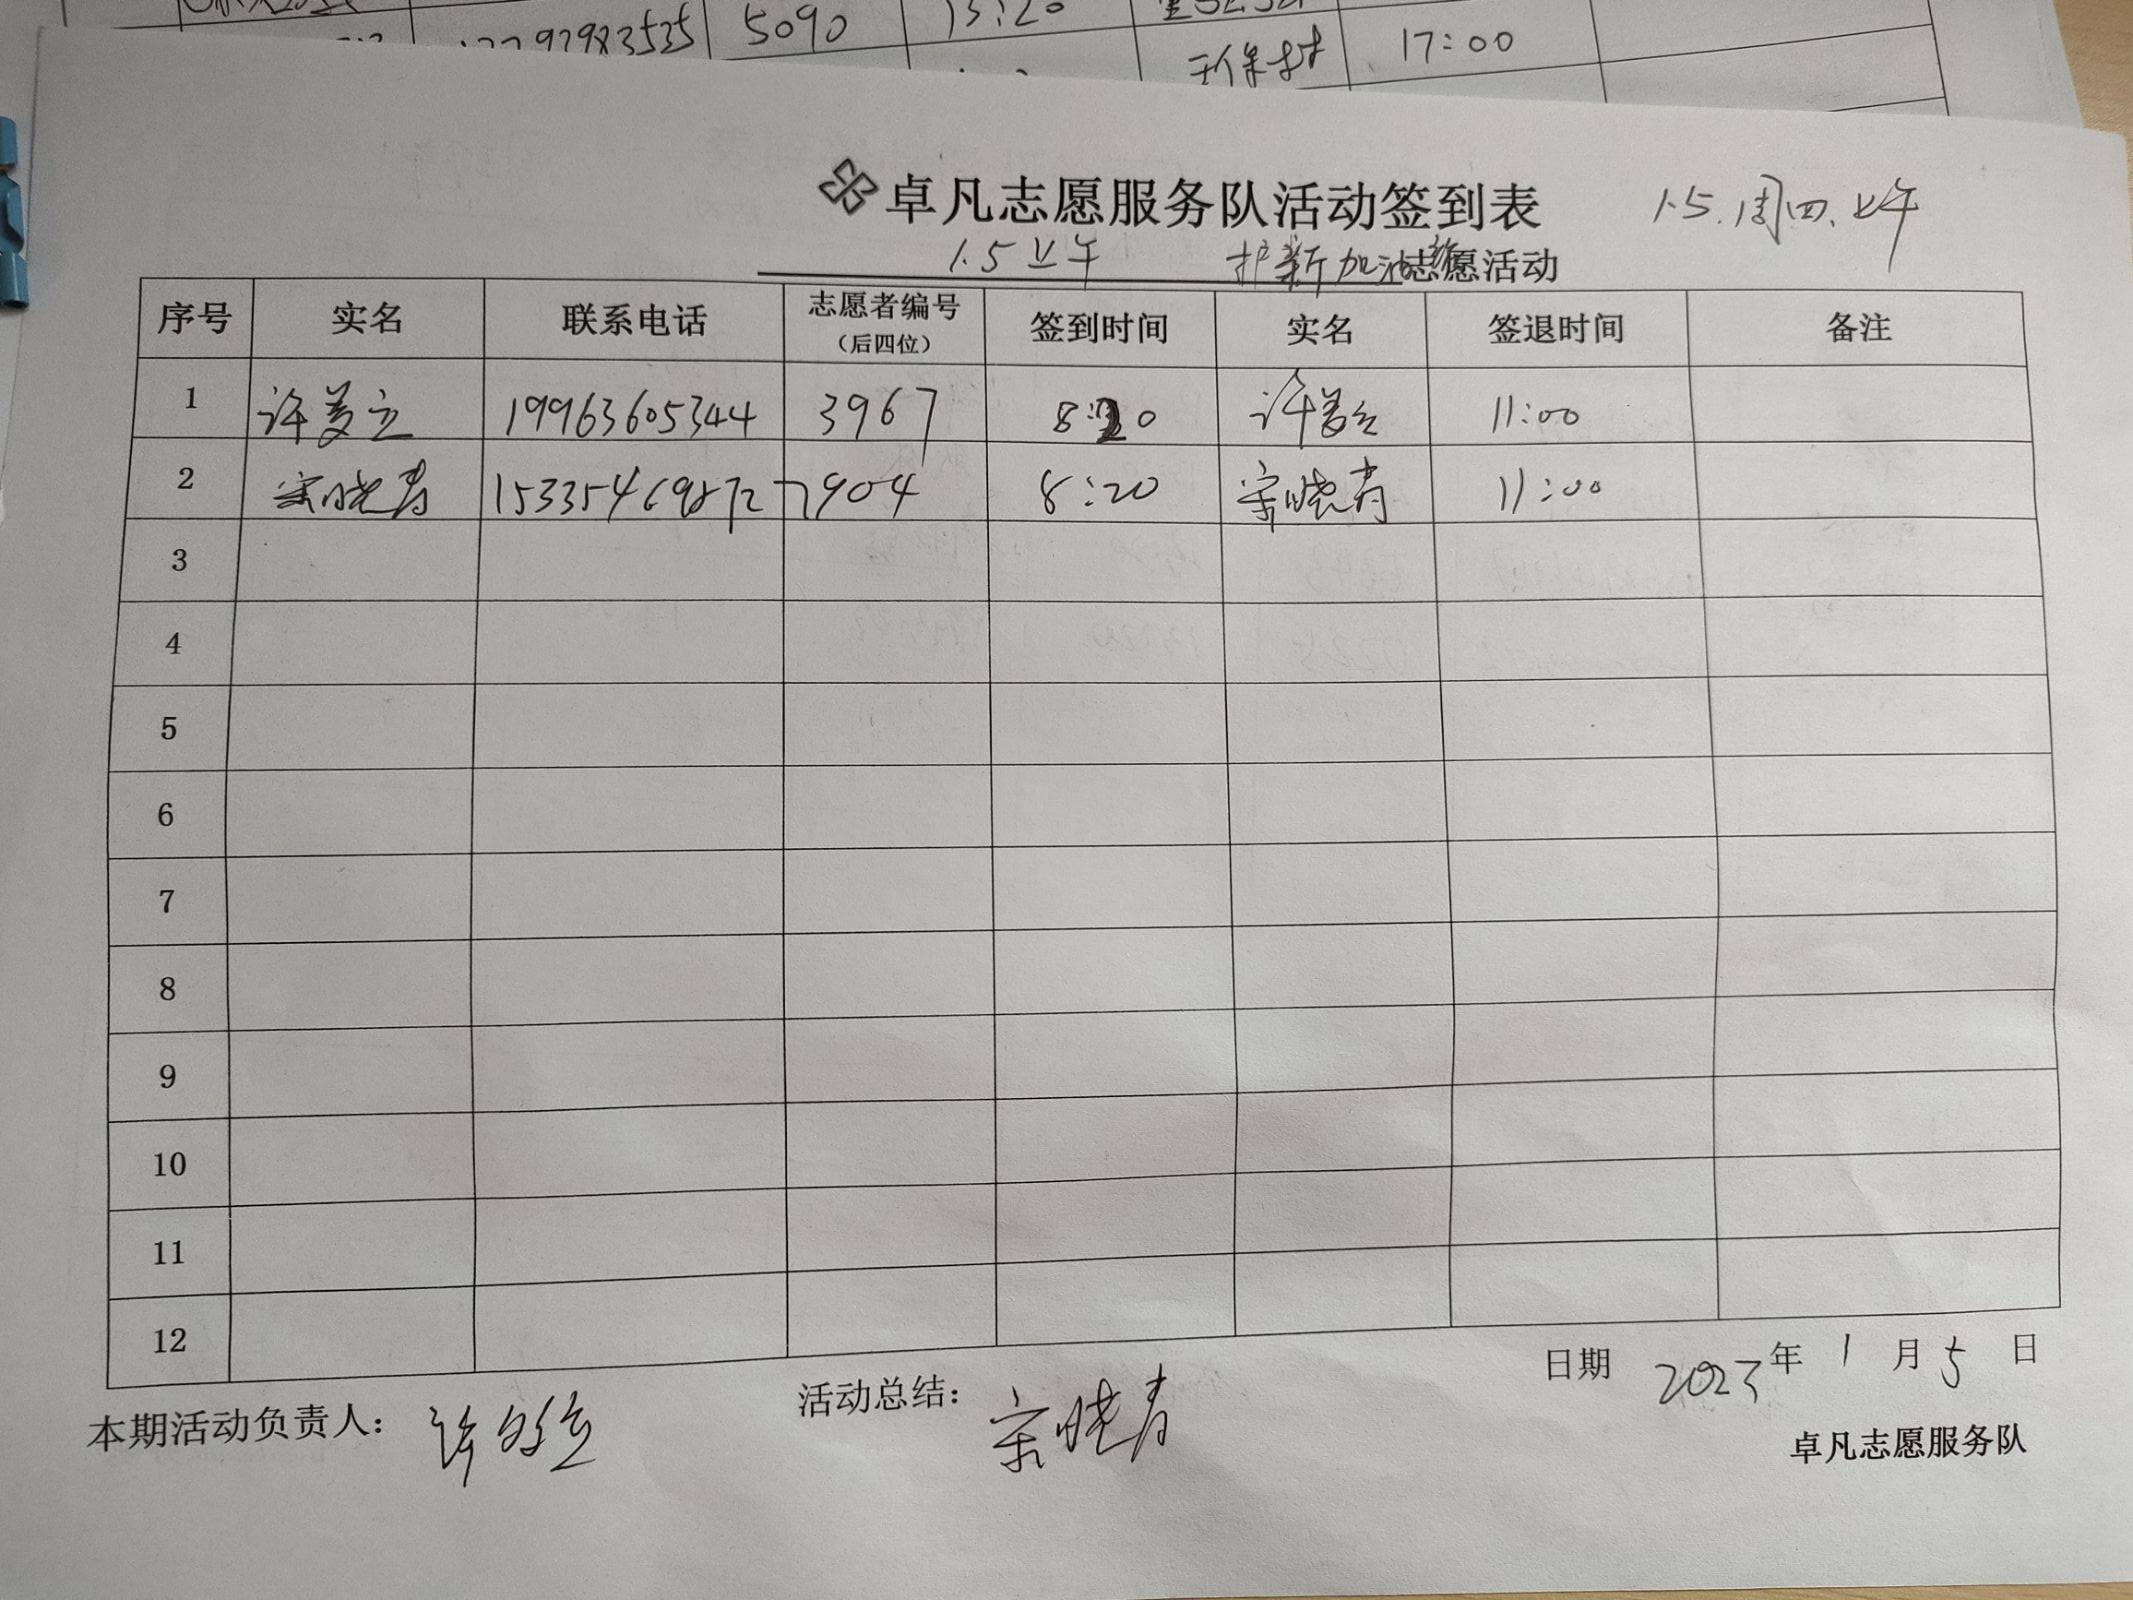 5090
13:20
17792983535
环保村
17:00
卓凡志愿服务队活动签到表
1.5.周四.上午
1.5上午
护新加油站
志愿活动
序号 实名 联系电话 志愿者编号（后四位） 签到时间 实名 签退时间 备注
1 许 立 19963605344 3967 8:20 许 立 11:00
2 宋晓青 7904 8:20 宋晓青 11:00
3
4
5
6
7
8
9
10
11
12
日期 2023年1月5日
本期活动负责人： 许 立
活动总结： 宋晓青
卓凡志愿服务队